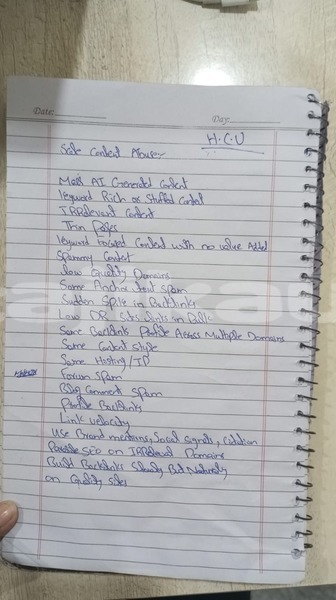 Date:
Day:
H.C.U
Scale Content Abuse
Mass AI Generated Content
Keyword Rich or Stuffed Content
IRRelevant Content
Thin Pages
Keyword Focused Content with no value Added
Spammy Content
Low Quality Domains
Same Anchor text Spam
Sudden Spike in Backlinks
Low DR sites links in Bulk
Same Backlinks Profile Across Multiple Domains
Same Content style
Same Hosting/IP
Forum Spam
Blog Comment Spam
Profile Backlinks
Link velocity
Use Brand mentions, Social signals, Citation
SEO on IRRelevant Domains
Build Backlinks Slowly But Naturally
on Quality sites